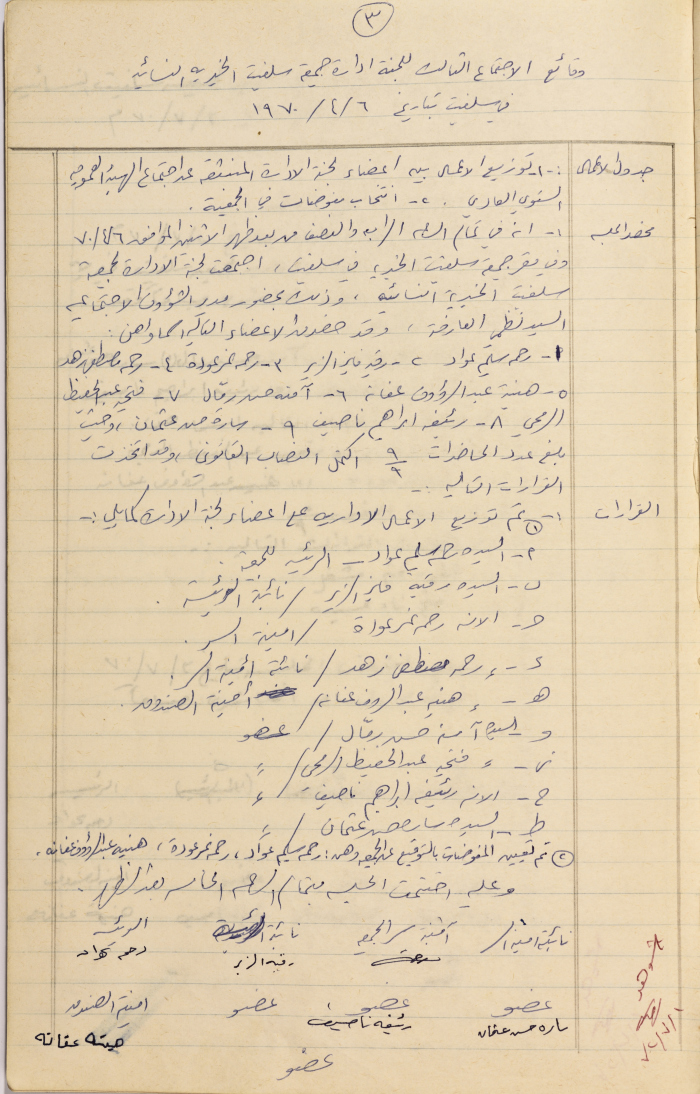 ٣
وقائع الاجتماع الثالث للجنة ادارة جمعية سلفيت الخيرية النسائية
في سلفيت بتاريخ ٦/٤/١٩٧٠
جدول الاعمال :- ١- توزيع الاعمال بين اعضاء لجنة الادارة المنبثقة عن اجتماع الهيئة العمومية
السنوي العادي . ٢- انتخاب مفوضات في الجمعية .
محضر الجلسة ١- انه في تمام الساعة الرابعة والنصف من بعد ظهر الاثنين الموافق ٦/٤/٧٠
وفي مقر جمعية سلفيت الخيرية في سلفيت ، اجتمعت لجنة الادارة لجمعية
سلفيت الخيرية النسائية ، وذلك بحضور مدير الشؤون الاجتماعية
السيد نظمي ، وقد حضرت الاعضاء التالية اسماؤهن :
١- رحمه سليم عواد ٢- رقيه فايز الزير ٣- رحمه نمر عودة ٤- رحمه مصطفى زهد
٥- هنية عبد الرؤوف عفانة ٦- آمنه حسن رمّال ٧- فتحيه عبد الحفيظ
الرمحي ٨- رئيفه ابراهيم ناصيف ٩- سارة حسن عثمان ، وحيث
بلغ عدد الحاضرات ٩/٩ اكتمل النصاب القانوني ، وقد اتخذت
القرارات التالية :-
القرارات ١- تم توزيع الاعمال الادارية على اعضاء لجنة الادارة كما يلي :-
أ- السيده رحمه سليم عواد - الرئيسه للجمعية .
ب- السيده رقيه فايز الزير / نائبة الرئيسة .
ج- الانسه رحمه نمر عودة / امينة السر .
د- ء رحمه مصطفى زهد / نائبة أمينة السر .
هـ- ء هنيه عبد الرؤوف عفانه / أمينة الصندوق .
و- السيده آمنه حسن رمّال / عضو
ز- ء فتحيه عبد الحفيظ الرمحي / ء
ح- الانسه رئيفه ابراهيم ناصيف / ء
ط- السيده ساره حسن عثمان / ء
٢ تم تعيين المفوضات بالتوقيع عن الجمعية وهن : رحمه سليم عواد ، رحمه نمر عودة ، هنيه عبد الرؤوف عفانه .
وعليه اختتمت الجلسه بتمام الساعه الخامسه بعد الظهر .
نائبة امينة السر أمينة سر الجمعية نائبة الرئيسة الرئيسه
رقيه الزير رحمه عواد
عضو عضو عضو امينة الصندوق
ساره حسن عثمان رئيفه ناصيف هنيه عفانه
عضو